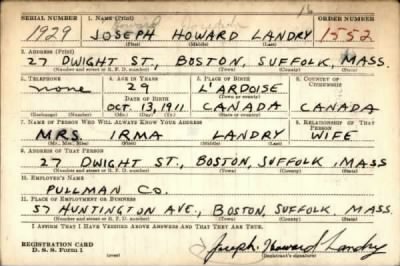 SERIAL NUMBER 1. NAME (Print) ORDER NUMBER
1929 JOSEPH HOWARD LANDRY 1552
(First) (Middle) (Last)
2. ADDRESS (Print)
27 DWIGHT ST, BOSTON, SUFFOLK, MASS.
(Number and street or R. F. D. number) (Town) (County) (State)
3. TELEPHONE 4. AGE IN YEARS 5. PLACE OF BIRTH 6. COUNTRY OF CITIZENSHIP
none 29 L'ARDOISE
DATE OF BIRTH (Town or county)
OCT. 13, 1911 CANADA CANADA
(Exchange) (Number) (Mo.) (Day) (Yr.) (State or country)
7. NAME OF PERSON WHO WILL ALWAYS KNOW YOUR ADDRESS 8. RELATIONSHIP OF THAT PERSON
MRS. IRMA LANDRY WIFE
(Mr., Mrs., Miss) (First) (Middle) (Last)
9. ADDRESS OF THAT PERSON
27 DWIGHT ST., BOSTON, SUFFOLK, MASS
(Number and street or R. F. D. number) (Town) (County) (State)
10. EMPLOYER'S NAME
PULLMAN CO.
11. PLACE OF EMPLOYMENT OR BUSINESS
57 HUNTINGTON AVE., BOSTON, SUFFOLK, MASS
(Number and street or R. F. D. number) (Town) (County) (State)
I AFFIRM THAT I HAVE VERIFIED ABOVE ANSWERS AND THAT THEY ARE TRUE.
REGISTRATION CARD
D. S. S. Form 1 Joseph Howard Landry
(Registrant's signature)